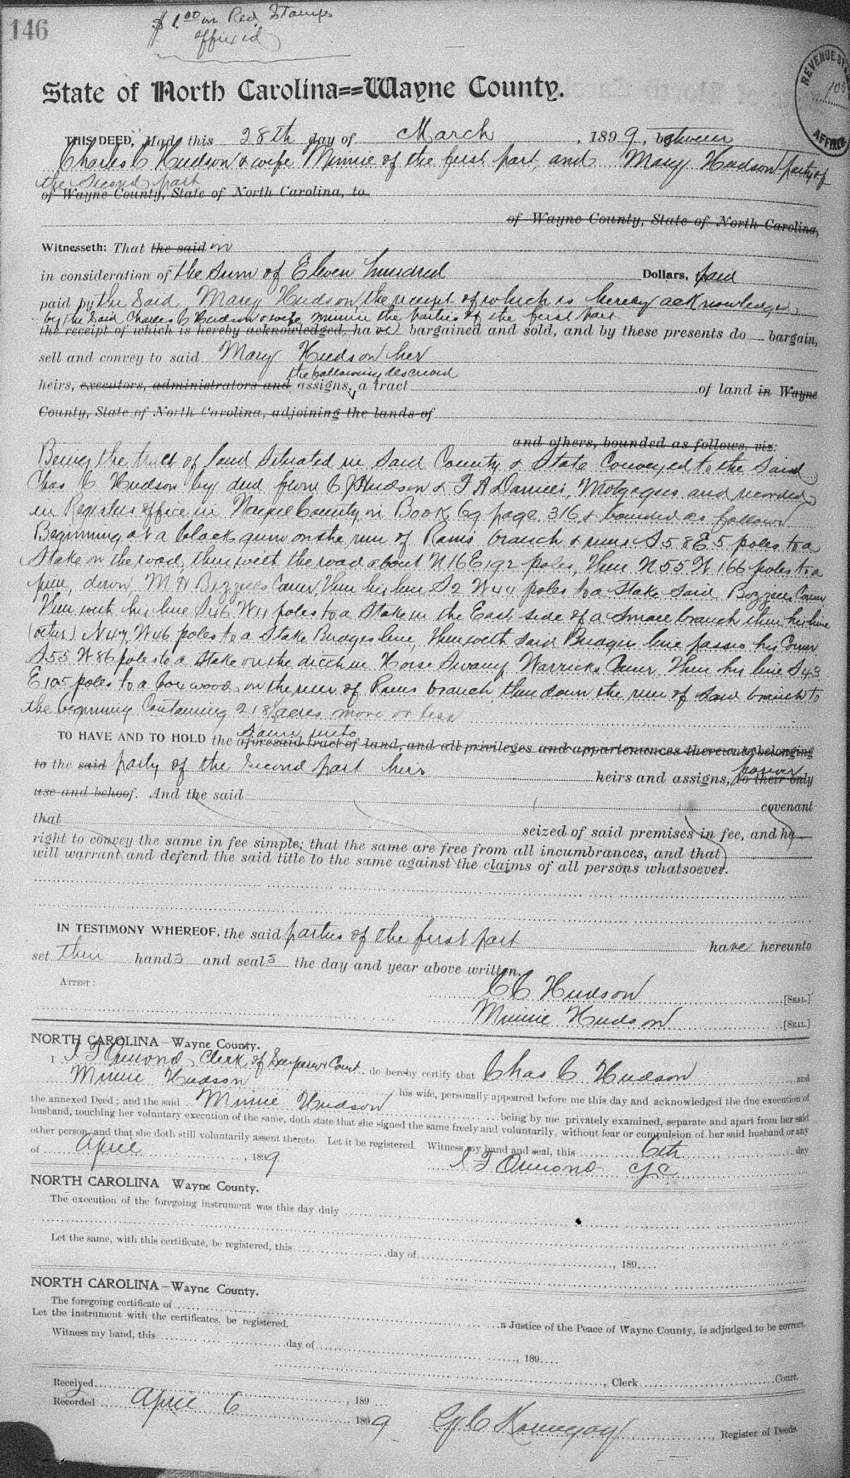 146
$1.00 in Rev. Stamps
affixed
REVENUE
100
AFFIXED
State of North Carolina==Wayne County.
THIS DEED, Made this 28th day of March, 1899, between
Charles C Hudson & wife Minnie of the first part, and Mary Hudson party of
the Second part
of Wayne County, State of North Carolina, to
of Wayne County, State of North Carolina,
Witnesseth: That the said in
in consideration of the sum of Eleven hundred Dollars, paid
paid by the Said Mary Hudson, the receipt of which is hereby acknowledged
by the Said Charles C Hudson & wife Minnie the parties of the first part
the receipt of which is hereby acknowledged, have bargained and sold, and by these presents do bargain,
sell and convey to said Mary Hudson her
the following described
heirs, executors, administrators and assigns, a tract of land in Wayne
County, State of North Carolina, adjoining the lands of
and others, bounded as follows, viz:
Being the tract of land Situated in Said County & State Conveyed to the Said
Chas C Hudson by deed from C J Hudson & F A Daniels, Mortgagees and recorded
in Registers office in Wayne County in Book 69 page 316 & bounded as follows
Beginning at a black gum on the run of Rains branch & runs S 58 E 5 poles to a
Stake in the road, then with the road about N 16 E 192 poles, then N 55 W 166 poles to a
pine, down M H Bizzells Corner, then his line S 2 W 44 poles to a Stake Said Bizzells Corner
Then with his line S 46 W 11 poles to a Stake in the East side of a Small branch then his line
N 47 W 46 poles to a Stake Bridges line, then with Said Bridges line passes his Corner
S 55 W 86 poles to a Stake on the ditch in Horse Swamp Warricks Corner. Then his line S 43
E 105 poles to a boxwood on the run of Rains branch, then down the run of Said branch to
the beginning Containing 218 acres more or less
Same unto
TO HAVE AND TO HOLD the aforesaid tract of land, and all privileges and appurtenances thereunto belonging
to the said party of the Second part her heirs and assigns, forever to their only
use and behoof. And the said covenant
that seized of said premises in fee, and ha
right to convey the same in fee simple; that the same are free from all incumbrances, and that
will warrant and defend the said title to the same against the claims of all persons whatsoever.
IN TESTIMONY WHEREOF, the said parties of the first part have hereunto
set their hands and seals the day and year above written.
ATTEST: C C Hudson [SEAL]
Minnie Hudson [SEAL]
NORTH CAROLINA—Wayne County.
I, I F Ormond, Clerk of Superior Court, do hereby certify that Chas C Hudson and
Minnie Hudson his wife, personally appeared before me this day and acknowledged the due execution of
the annexed Deed; and the said Minnie Hudson being by me privately examined, separate and apart from her said
husband, touching her voluntary execution of the same, doth state that she signed the same freely and voluntarily, without fear or compulsion of her said husband or any
other person, and that she doth still voluntarily assent thereto. Let it be registered. Witness my hand and seal, this 6th day
of April, 1899 I F Ormond CSC
NORTH CAROLINA Wayne County.
The execution of the foregoing instrument was this day duly
Let the same, with this certificate, be registered, this day of, 189
NORTH CAROLINA—Wayne County.
The foregoing certificate of a Justice of the Peace of Wayne County, is adjudged to be correct.
Let the instrument with the certificates, be registered.
Witness my hand, this day of, 189
, Clerk Court.
Received, 189
Recorded April 6 1899 Register of Deeds.